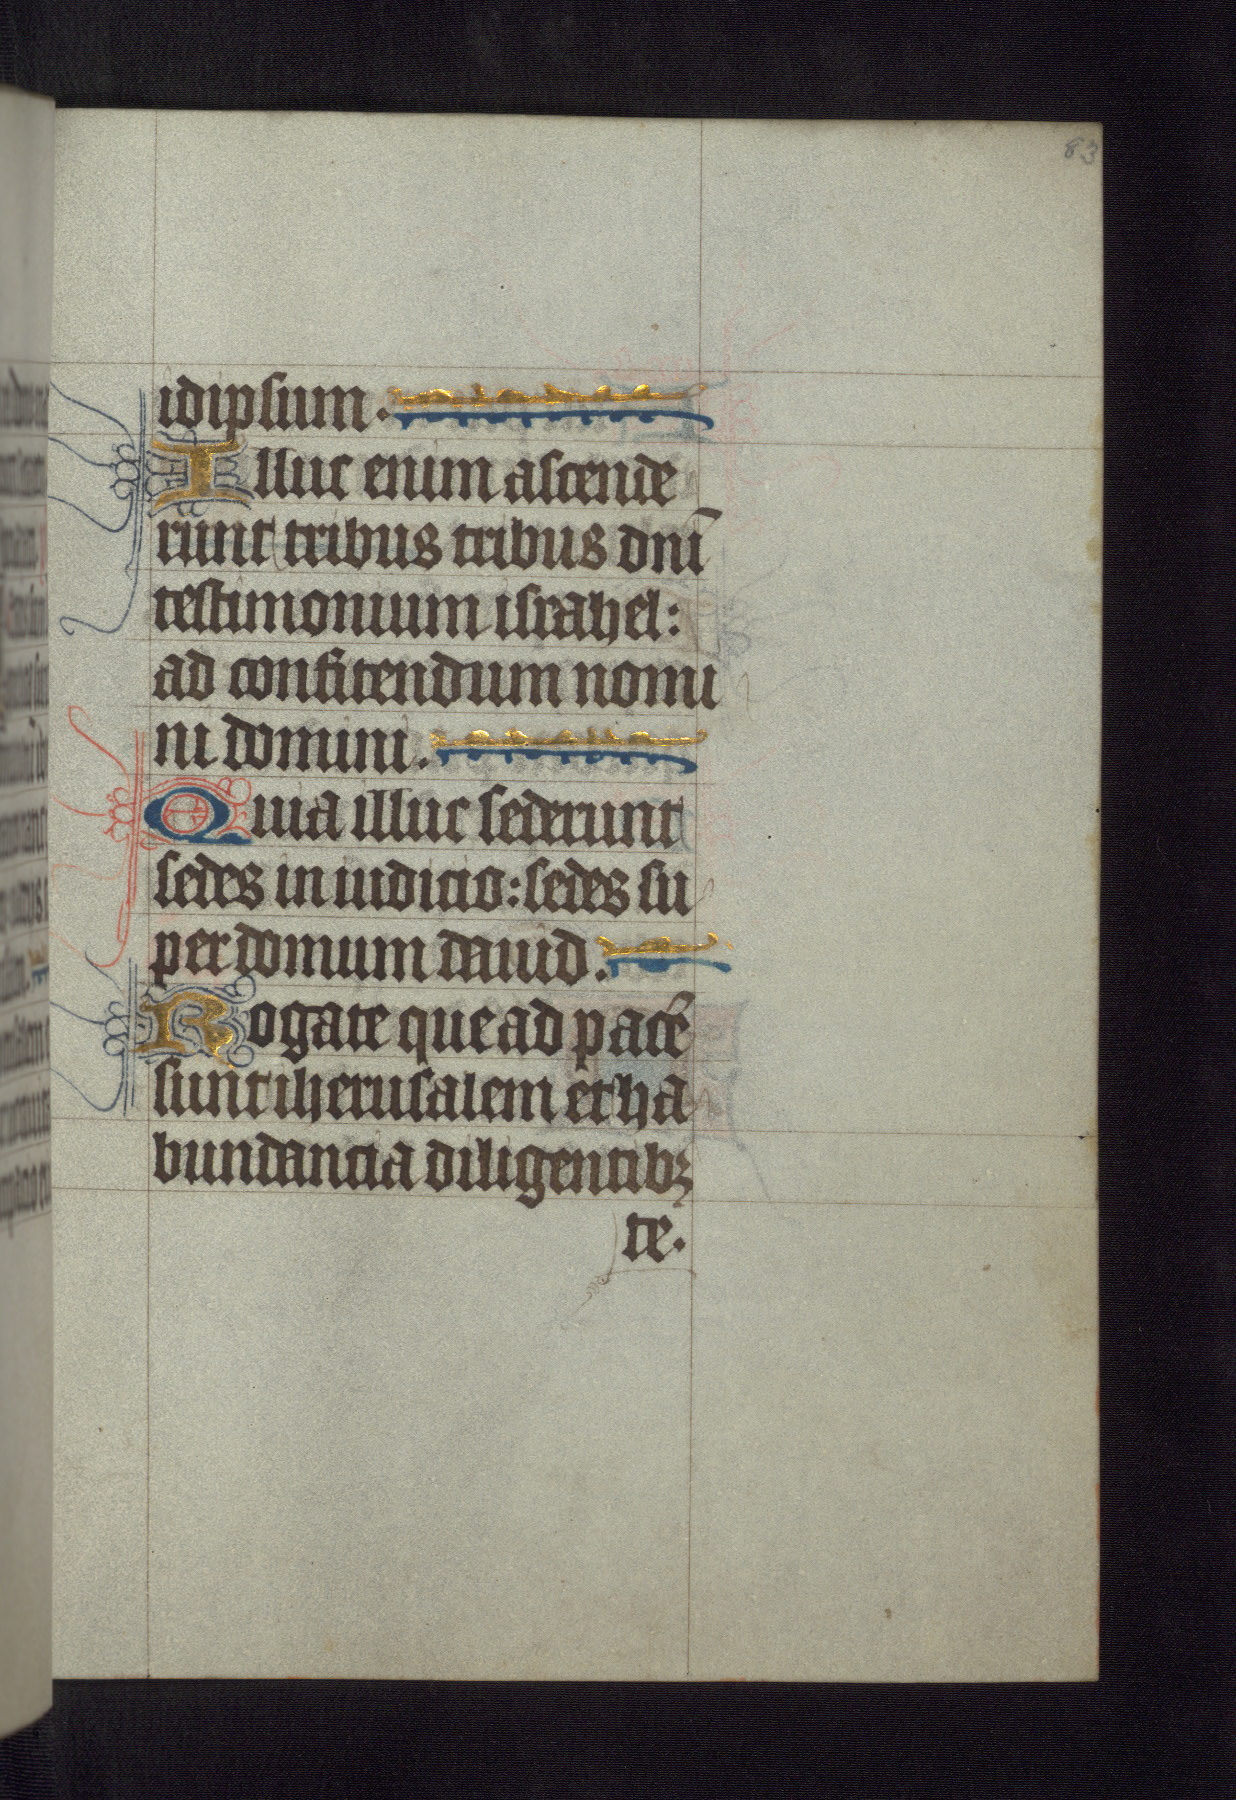 83
idipsum.
Illuc enim ascende
runt tribus tribus dnī
testimonium israhel:
ad confitendum nomi
ni domini.
Quia illuc sederunt
sedes in iudicio: sedes su
per domum dauid.
Rogate que ad pacē
sunt iherusalem et ha
bundantia diligentibꝫ
te.